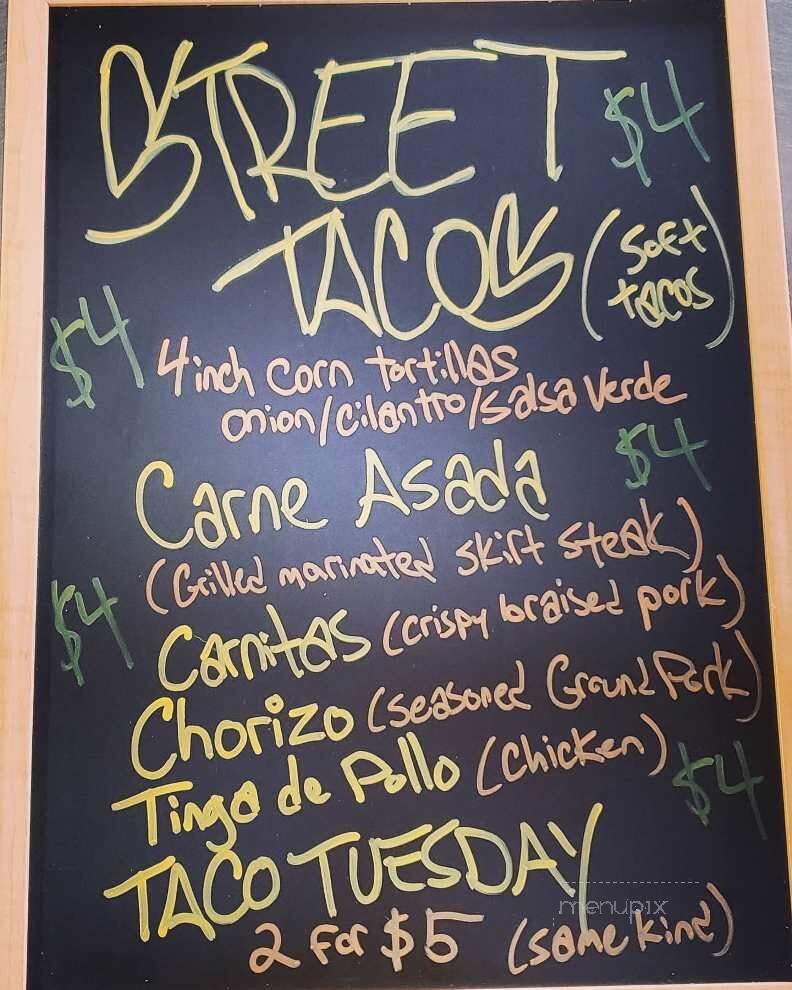 STREET $4
TACOS (soft
tacos)
$4 4 inch corn tortillas
onion/cilantro/salsa verde
Carne Asada $4
(Grilled marinated skirt steak)
$4 Carnitas (crispy braised pork)
Chorizo (seasoned Ground Pork)
Tinga de Pollo (chicken) $4
TACO TUESDAY
menupix
2 for $5 (same kind)